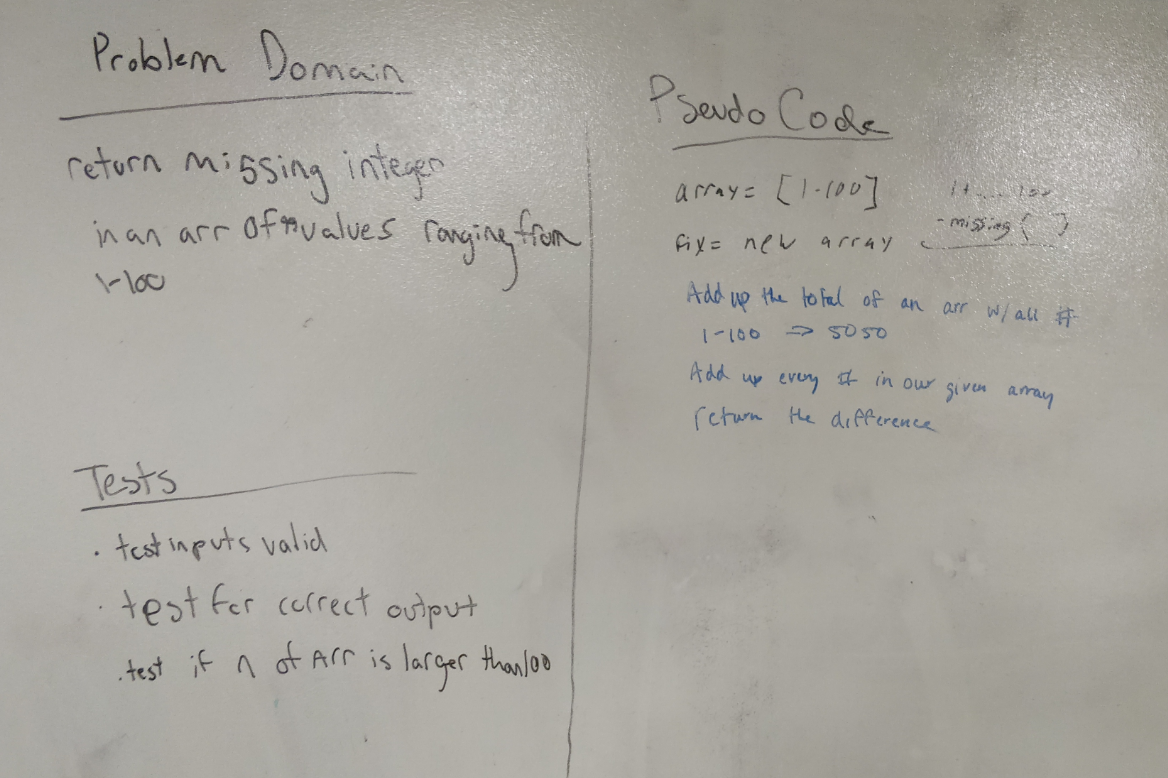 Problem Domain
return missing integer
in an arr of "n" values ranging from
1-100
Tests
. test inputs valid
. test for correct output
. test if n of Arr is larger than 100
Pseudo Code
array = [1-100]
fix = new array
1+ .... 100
- missing ( )
Add up the total of an arr w/ all #
1-100 => 5050
Add up every # in our given array
return the difference